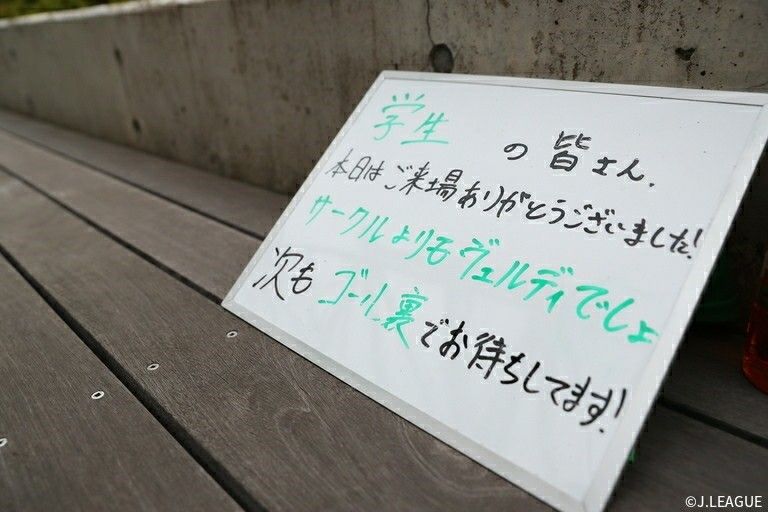 学生の皆さん.
本日はご来場ありがとうございました!
サークルよりもヴェルディでしょ
次もゴール裏でお待ちしてます!
©J.LEAGUE